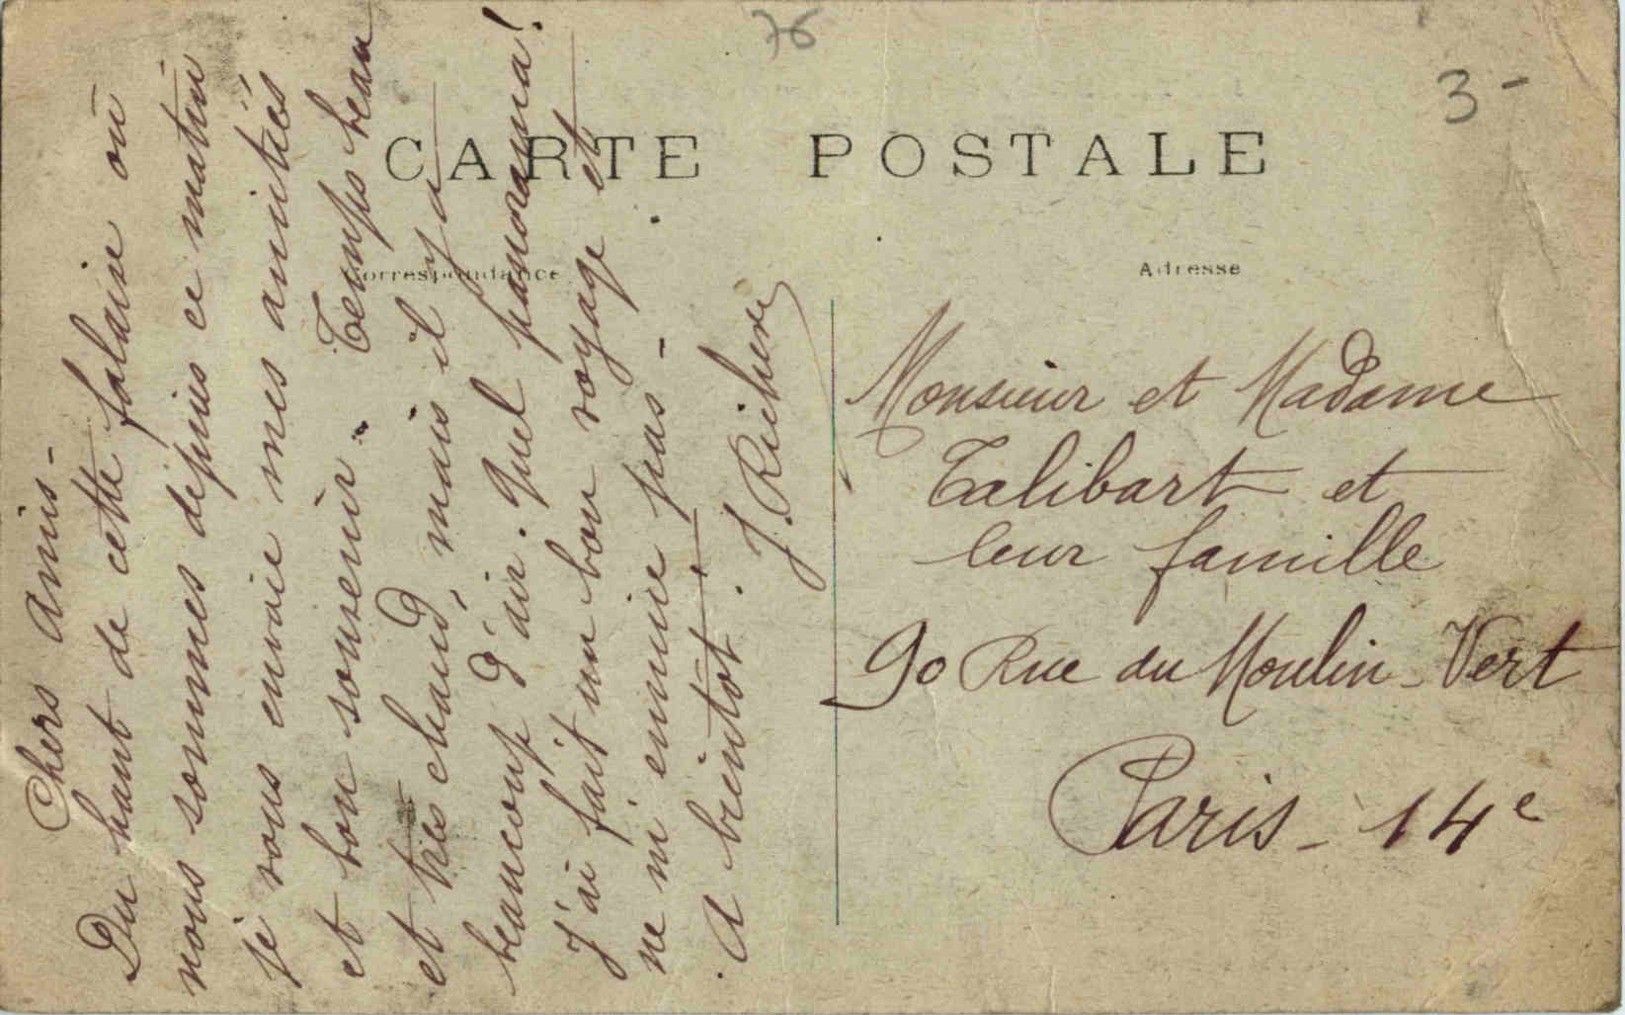 76
3-
CARTE POSTALE
Correspondance
Adresse
Chers Amis-
Du haut de cette falaise où
nous sommes depuis ce matin
je vous envoie mes amitiés
et bon souvenir. Temps beau
et très chaud, mais il y a
beaucoup d'air. Quel panorama!
J'ai fait un bon voyage et
ne m'ennuie pas-
A bientôt.
J. Richere
Monsieur et Madame
Talibart et
leur famille
90 Rue du Moulin-Vert
Paris-14e